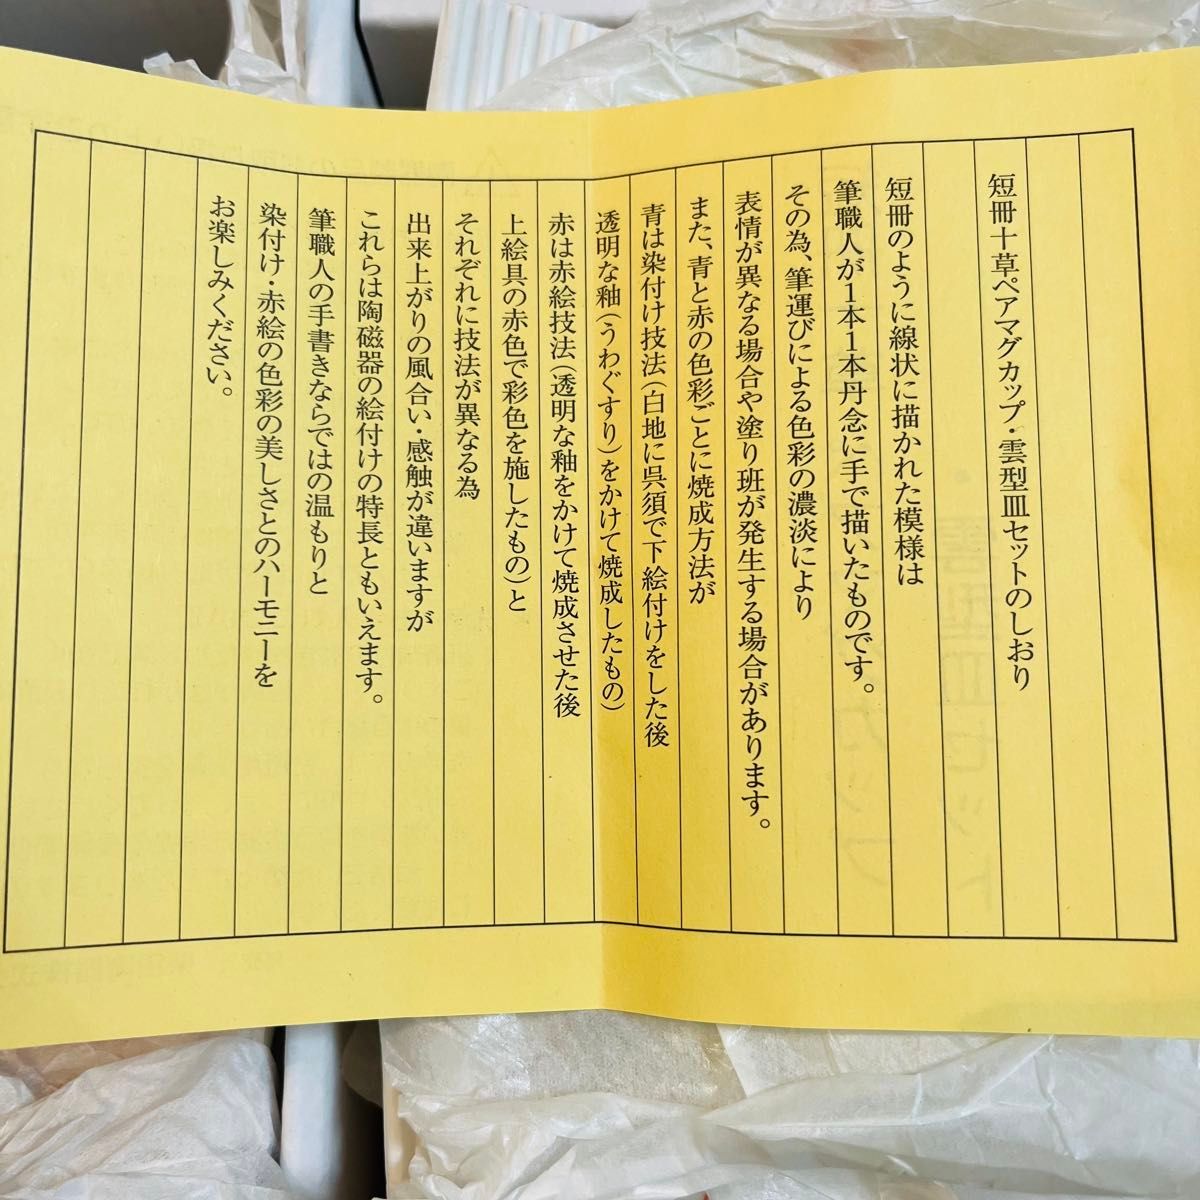 短冊十草ペアマグカップ・雲型皿セットのしおり
短冊のように線状に描かれた模様は
筆職人が1本1本丹念に手で描いたものです。
その為、筆運びによる色彩の濃淡により
表情が異なる場合や塗り班が発生する場合があります。
また、青と赤の色彩ごとに焼成方法が
青は染付け技法(白地に呉須で下絵付けをした後
透明な釉(うわぐすり)をかけて焼成したもの)
赤は赤絵技法(透明な釉をかけて焼成させた後
上絵具の赤色で彩色を施したもの)と
それぞれに技法が異なる為
出来上がりの風合い・感触が違いますが
これらは陶磁器の絵付けの特長ともいえます。
筆職人の手書きならではの温もりと
染付け・赤絵の色彩の美しさとのハーモニーを
お楽しみください。